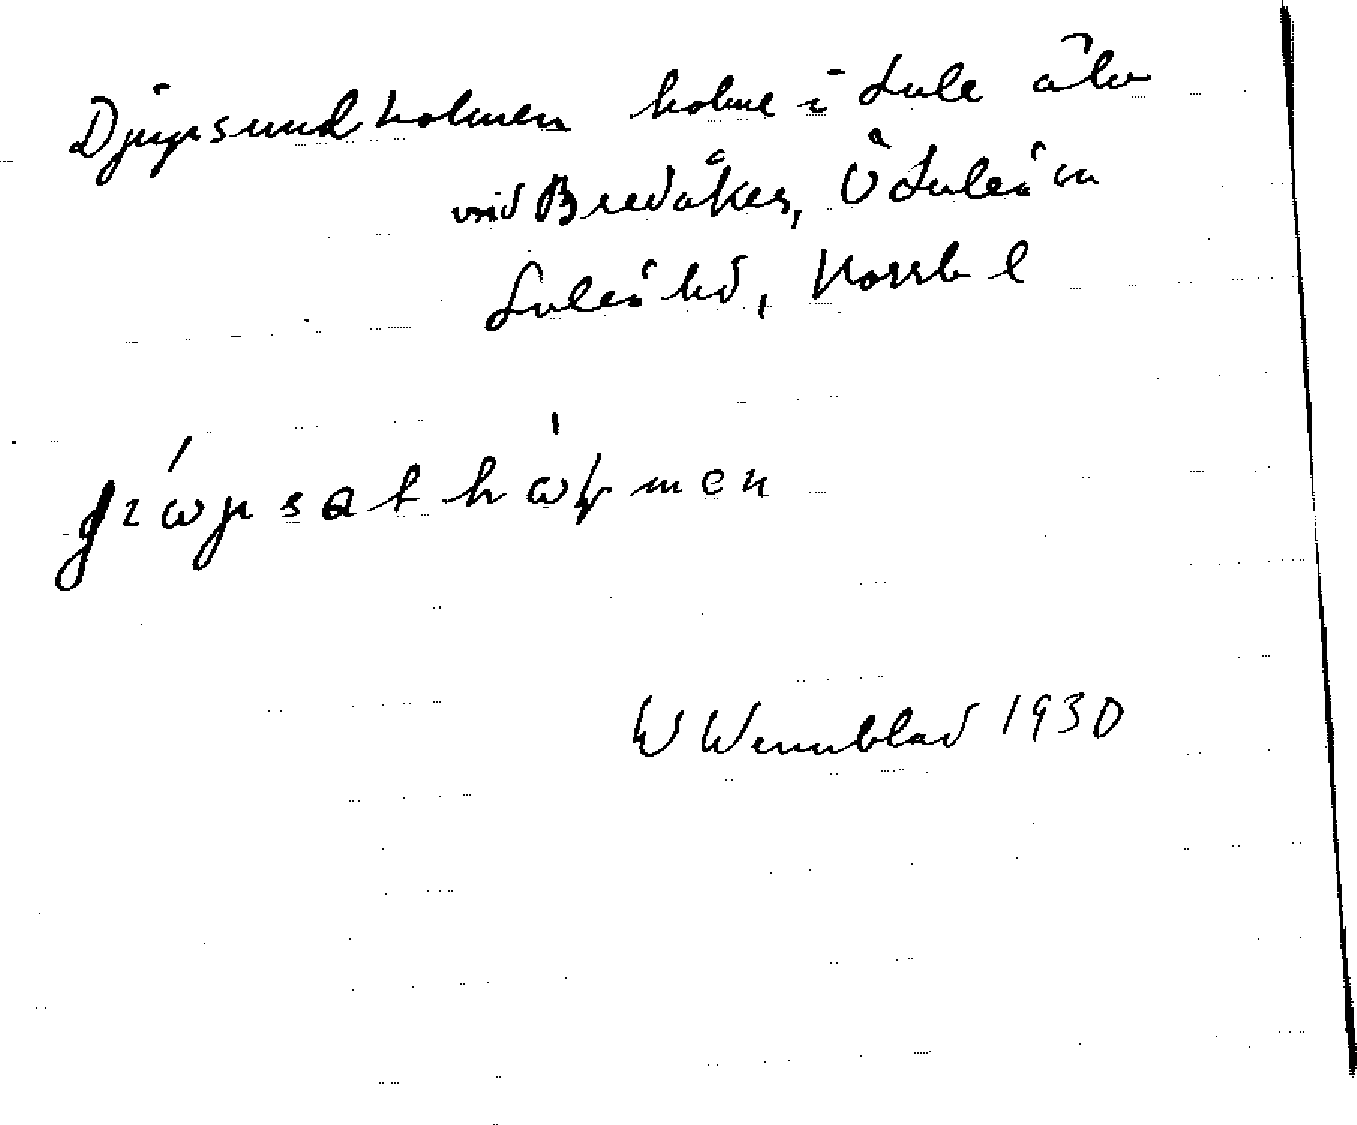 Djupsundholmen holme i Lule älv
vid Bredåker, Ö Luleå sn
Luleå hd, Norrb l
W Wennblad 1930